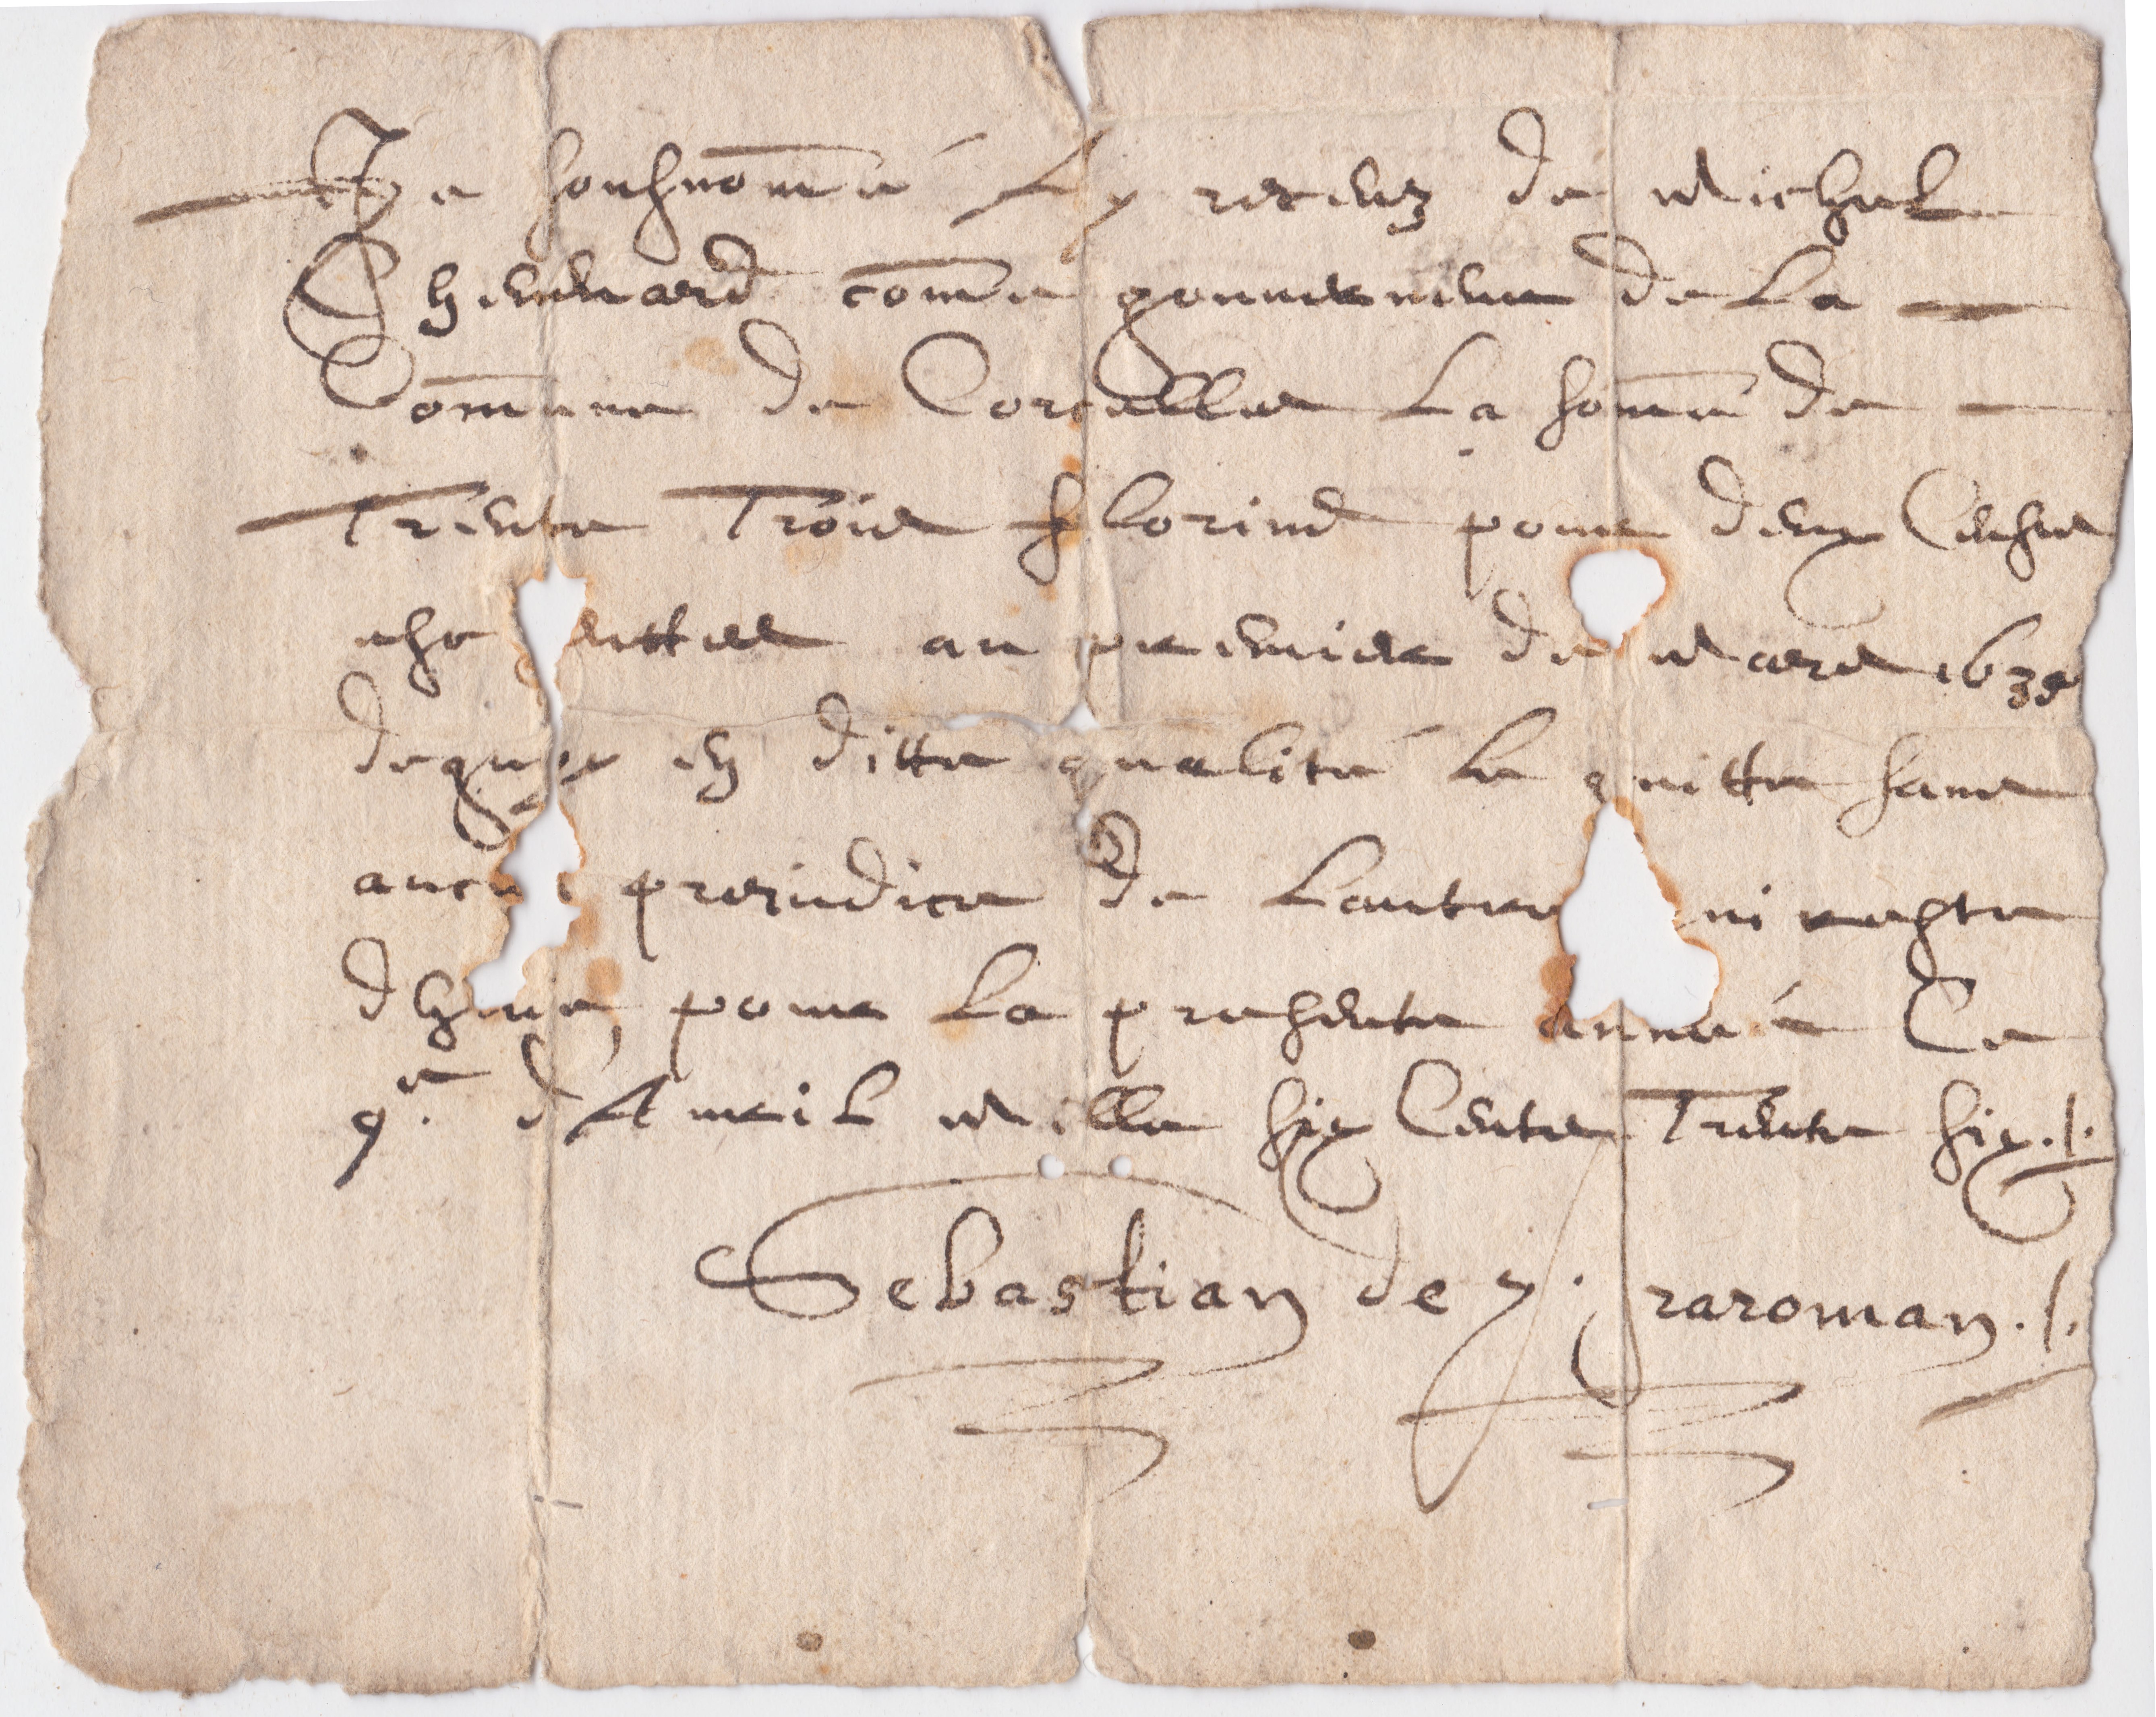 Je sousnome Ay receuz de Michel
Chennard come gouuerneur de La
Comune de Corcelles La some de
Trente Trois florins pour deux Censes
esc euttes au premier de Mars 1635
dequoy en ditte qualité Le quitte sans
aucun preiudice de Lautre ui reste
dheue pour La presente année Ce
9e. d'Auril Mille six Cents Trente six ./.
Sebastian de raroman ./.